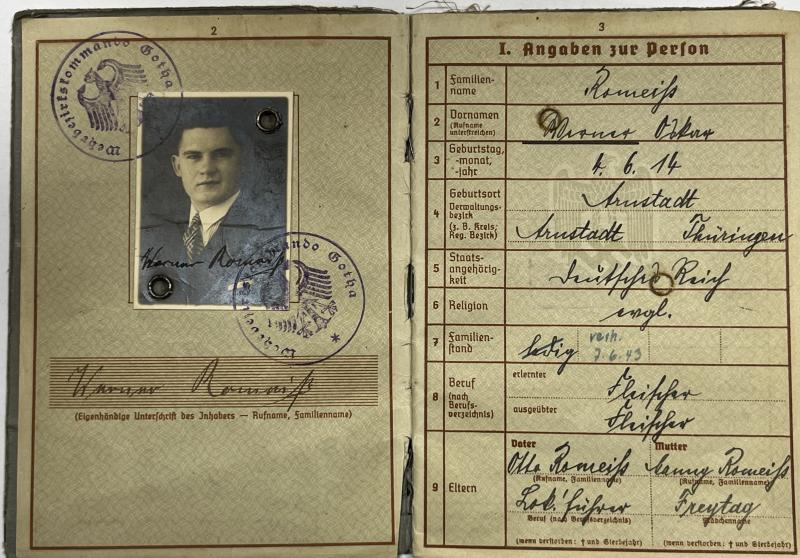 2
Wehrbezirkskommando Gotha
Werner Romeiß
Wehrbezirkskommando Gotha
Werner Romeiß
(Eigenhändige Unterschrift des Inhabers — Rufname, Familienname)
3
I. Angaben zur Person
1 Familien-
name
Romeiß
2 Vornamen
(Rufname
unterstreichen)
Werner Oskar
3 Geburtstag,
-monat,
-jahr
4. 6. 14
4 Geburtsort
Verwaltungs-
bezirk
(z. B. Kreis;
Reg. Bezirk)
Arnstadt
Arnstadt Thüringen
5 Staats-
angehörig-
keit
Deutsches Reich
6 Religion
evgl.
7 Familien-
stand
ledig
verh.
7. 6. 43
8 Beruf
(nach
Berufs-
verzeichnis)
erlernter
Fleischer
ausgeübter
Fleischer
9 Eltern
Vater
Otto Romeiß
(Rufname, Familienname)
Lok.führer
Beruf (nach Berufsverzeichnis)
(wenn verstorben: † und Sterbejahr)
Mutter
Romeiß
(Rufname, Familienname)
Freytag
Mädchenname
(wenn verstorben: † und Sterbejahr)